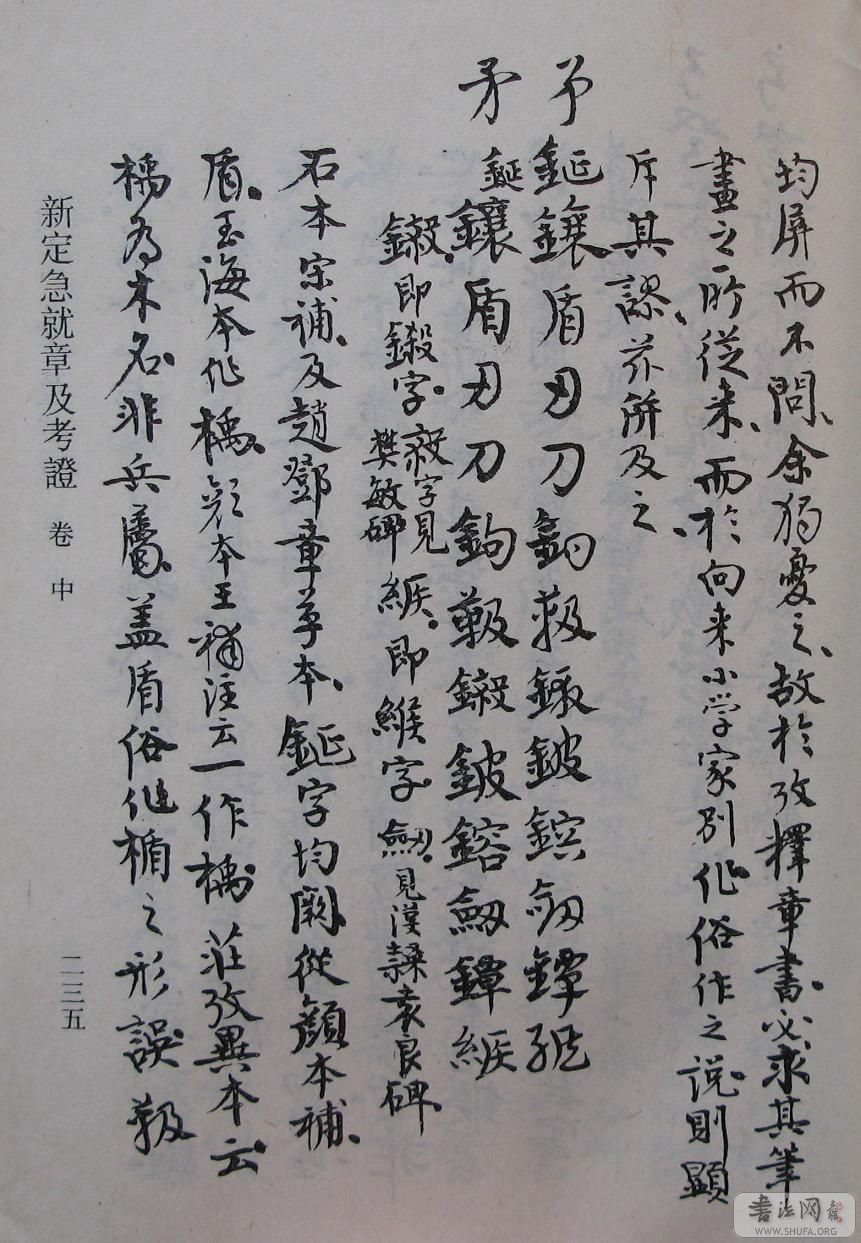 均屏而不問、余獨憂之、故於攷釋章書、必求其筆
畫之所從来、而於向来小学家別作俗作之說、則顯
斥其謬、并附及之、
矛鋋鑲盾刃刀鉤
矛鋋鑲盾刃刀鉤鈹鎔劒鐔緱
鍛、即鎩字、字見樊敏碑 緱、即緱字、劒、見漢隸袁良碑、
石本宋補、及趙鄧章草本、鋋字均闕、從顏本補、
盾、玉海本作楯、顏本王補注云一作楯 莊攷異本云
為木名、非兵屬、蓋盾俗作楯之形誤
新定急就章及考證 卷中
二三五
書法网
WWW.SHUFA.ORG